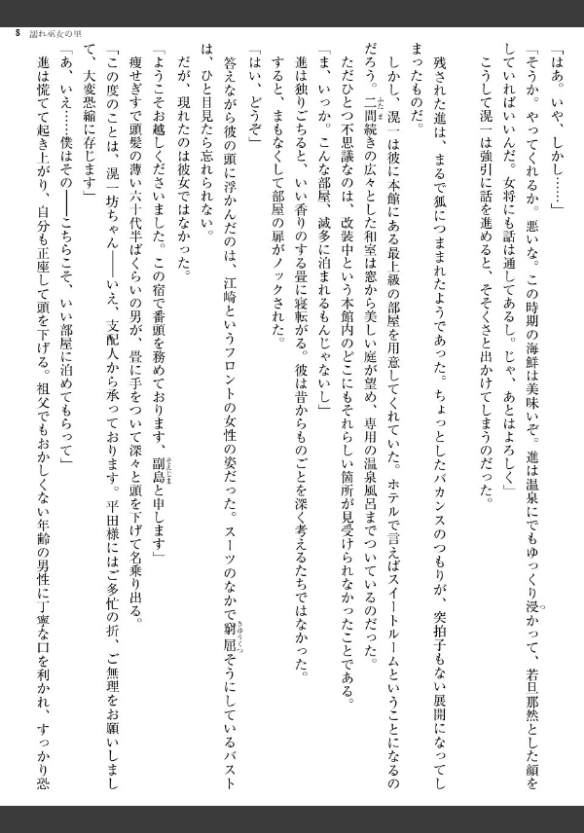 8 濡れ巫女の里
「はあ。いや、しかし……」
「そうか。やってくれるか。悪いな。この時期の海鮮は美味いぞ。進は温泉にでもゆっくり浸かって、若旦那然とした顔を
していればいいんだ。女将にも話は通してあるし。じゃ、あとはよろしく」
こうして滉一は強引に話を進めると、そそくさと出かけてしまうのだった。
残された進は、まるで狐につままれたようであった。ちょっとしたバカンスのつもりが、突拍子もない展開になってし
まったものだ。
しかし、滉一は彼に本館にある最上級の部屋を用意してくれていた。ホテルで言えばスイートルームということになるの
だろう。二間続きの広々とした和室は窓から美しい庭が望め、専用の温泉風呂までついているのだった。
ただひとつ不思議なのは、改装中という本館内のどこにもそれらしい箇所が見受けられなかったことである。
「ま、いっか。こんな部屋、滅多に泊まれるもんじゃないし」
進は独りごちると、いい香りのする畳に寝転がる。彼は昔からものごとを深く考えるたちではなかった。
すると、まもなくして部屋の扉がノックされた。
「はい、どうぞ」
答えながら彼の頭に浮かんだのは、江崎というフロントの女性の姿だった。スーツのなかで窮屈そうにしているバスト
は、ひと目見たら忘れられない。
だが、現れたのは彼女ではなかった。
「ようこそお越しくださいました。この宿で番頭を務めております、副島と申します」
痩せぎすで頭髪の薄い六十代半ばくらいの男が、畳に手をついて深々と頭を下げて名乗り出る。
「この度のことは、滉一坊ちゃん――いえ、支配人から承っております。平田様にはご多忙の折、ご無理をお願いしまし
て、大変恐縮に存じます」
「あ、いえ……僕はその――こちらこそ、いい部屋に泊めてもらって」
進は慌てて起き上がり、自分も正座して頭を下げる。祖父でもおかしくない年齢の男性に丁寧な口を利かれ、すっかり恐